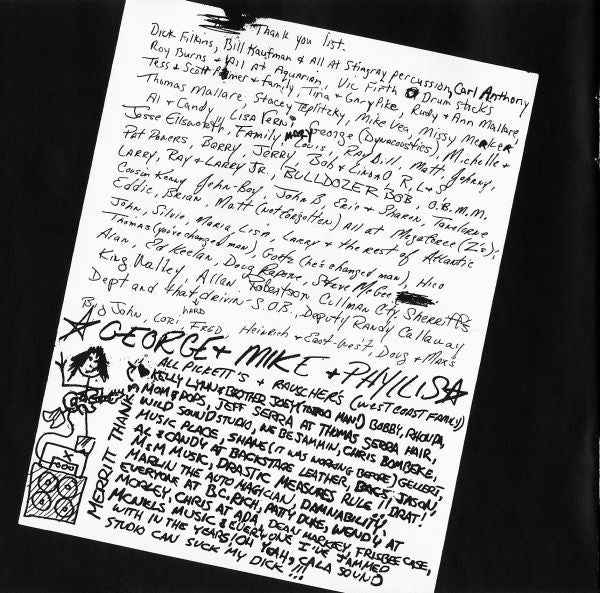 Thank you list.
Dick Filkins, Bill Kaufman & All At Stingray percussion, Carl Anthony
Roy Burns & All At Aquarian, Vic Firth Drum sticks
Tess & Scott & family, Tina & Gary Pike, Rudy & Ann Mallare,
Thomas Mallare, Stacey Teplitzky, Mike Vea, Missy Merker,
Al & Candy, Lisa Verni, George (Dynacoustics), Michelle &
Jesse Ellsworth, Family, Louis, Ray Dill, Matt, Johnny,
Pat Powers, Barry, Jerry, Bob & Linda O R, L & S
Larry, Ray & Larry Jr., BULLDOZER BOB, O.B.M.M.
Cousin Kenny, John-Boy, John B, Eric & Sharon,
Eddie, Brian, Matt (not forgotten) All at Megaforce (Z's);
John, Silvio, Maria, Lisa, Larry & the rest of Atlantic
Thomas (you've changed man), Gotto (he's changed man), Hico
Alan, Ed Keelan, Doug, Steve McGee
King Nalley, Allan Robertson, Cullman Cty. Sherriffs
Dept and that hard drivin- S.O.B., Deputy Randy Callaway
Big John, Lori, FRED, Heinrich & East-West, Doug & Max's
GEORGE & MIKE & PHYLLIS
ALL PICKETT'S & RAUSCHER'S (WEST COAST FAMILY)
KELLY LYNN & BROTHER JOEY (TATOO MAN!) BOBBY, RHONDA,
MOM & POPS, JEFF SERRA AT THOMAS SERRA HAIR,
WILD SOUND STUDIO, WE BE JAMMIN, CHRIS BOMBEKE,
MUSIC PLACE, SHANE (IT WAS WORKING BEFORE) GELLERT,
AL & CANDY AT BACKSTAGE LEATHER, BRICS, JASON,
M&M MUSIC, DRASTIC MEASURES RULE!! DRAT!
MARLIN THE AUTO MAGICIAN, DAMNABILITY,
EVERYONE AT B.C. RICH, PATY DUKE, WENDY AT
MORLEY, CHRIS AT ADA, DEAN MARKEY, FRISBEE CASE,
MCNIELS MUSIC & EVERYONE I'VE JAMMED
WITH IN THE YEARS (OH YEAH, CALA SOUND
STUDIO CAN SUCK MY DICK!!!
MERRITT THANKS